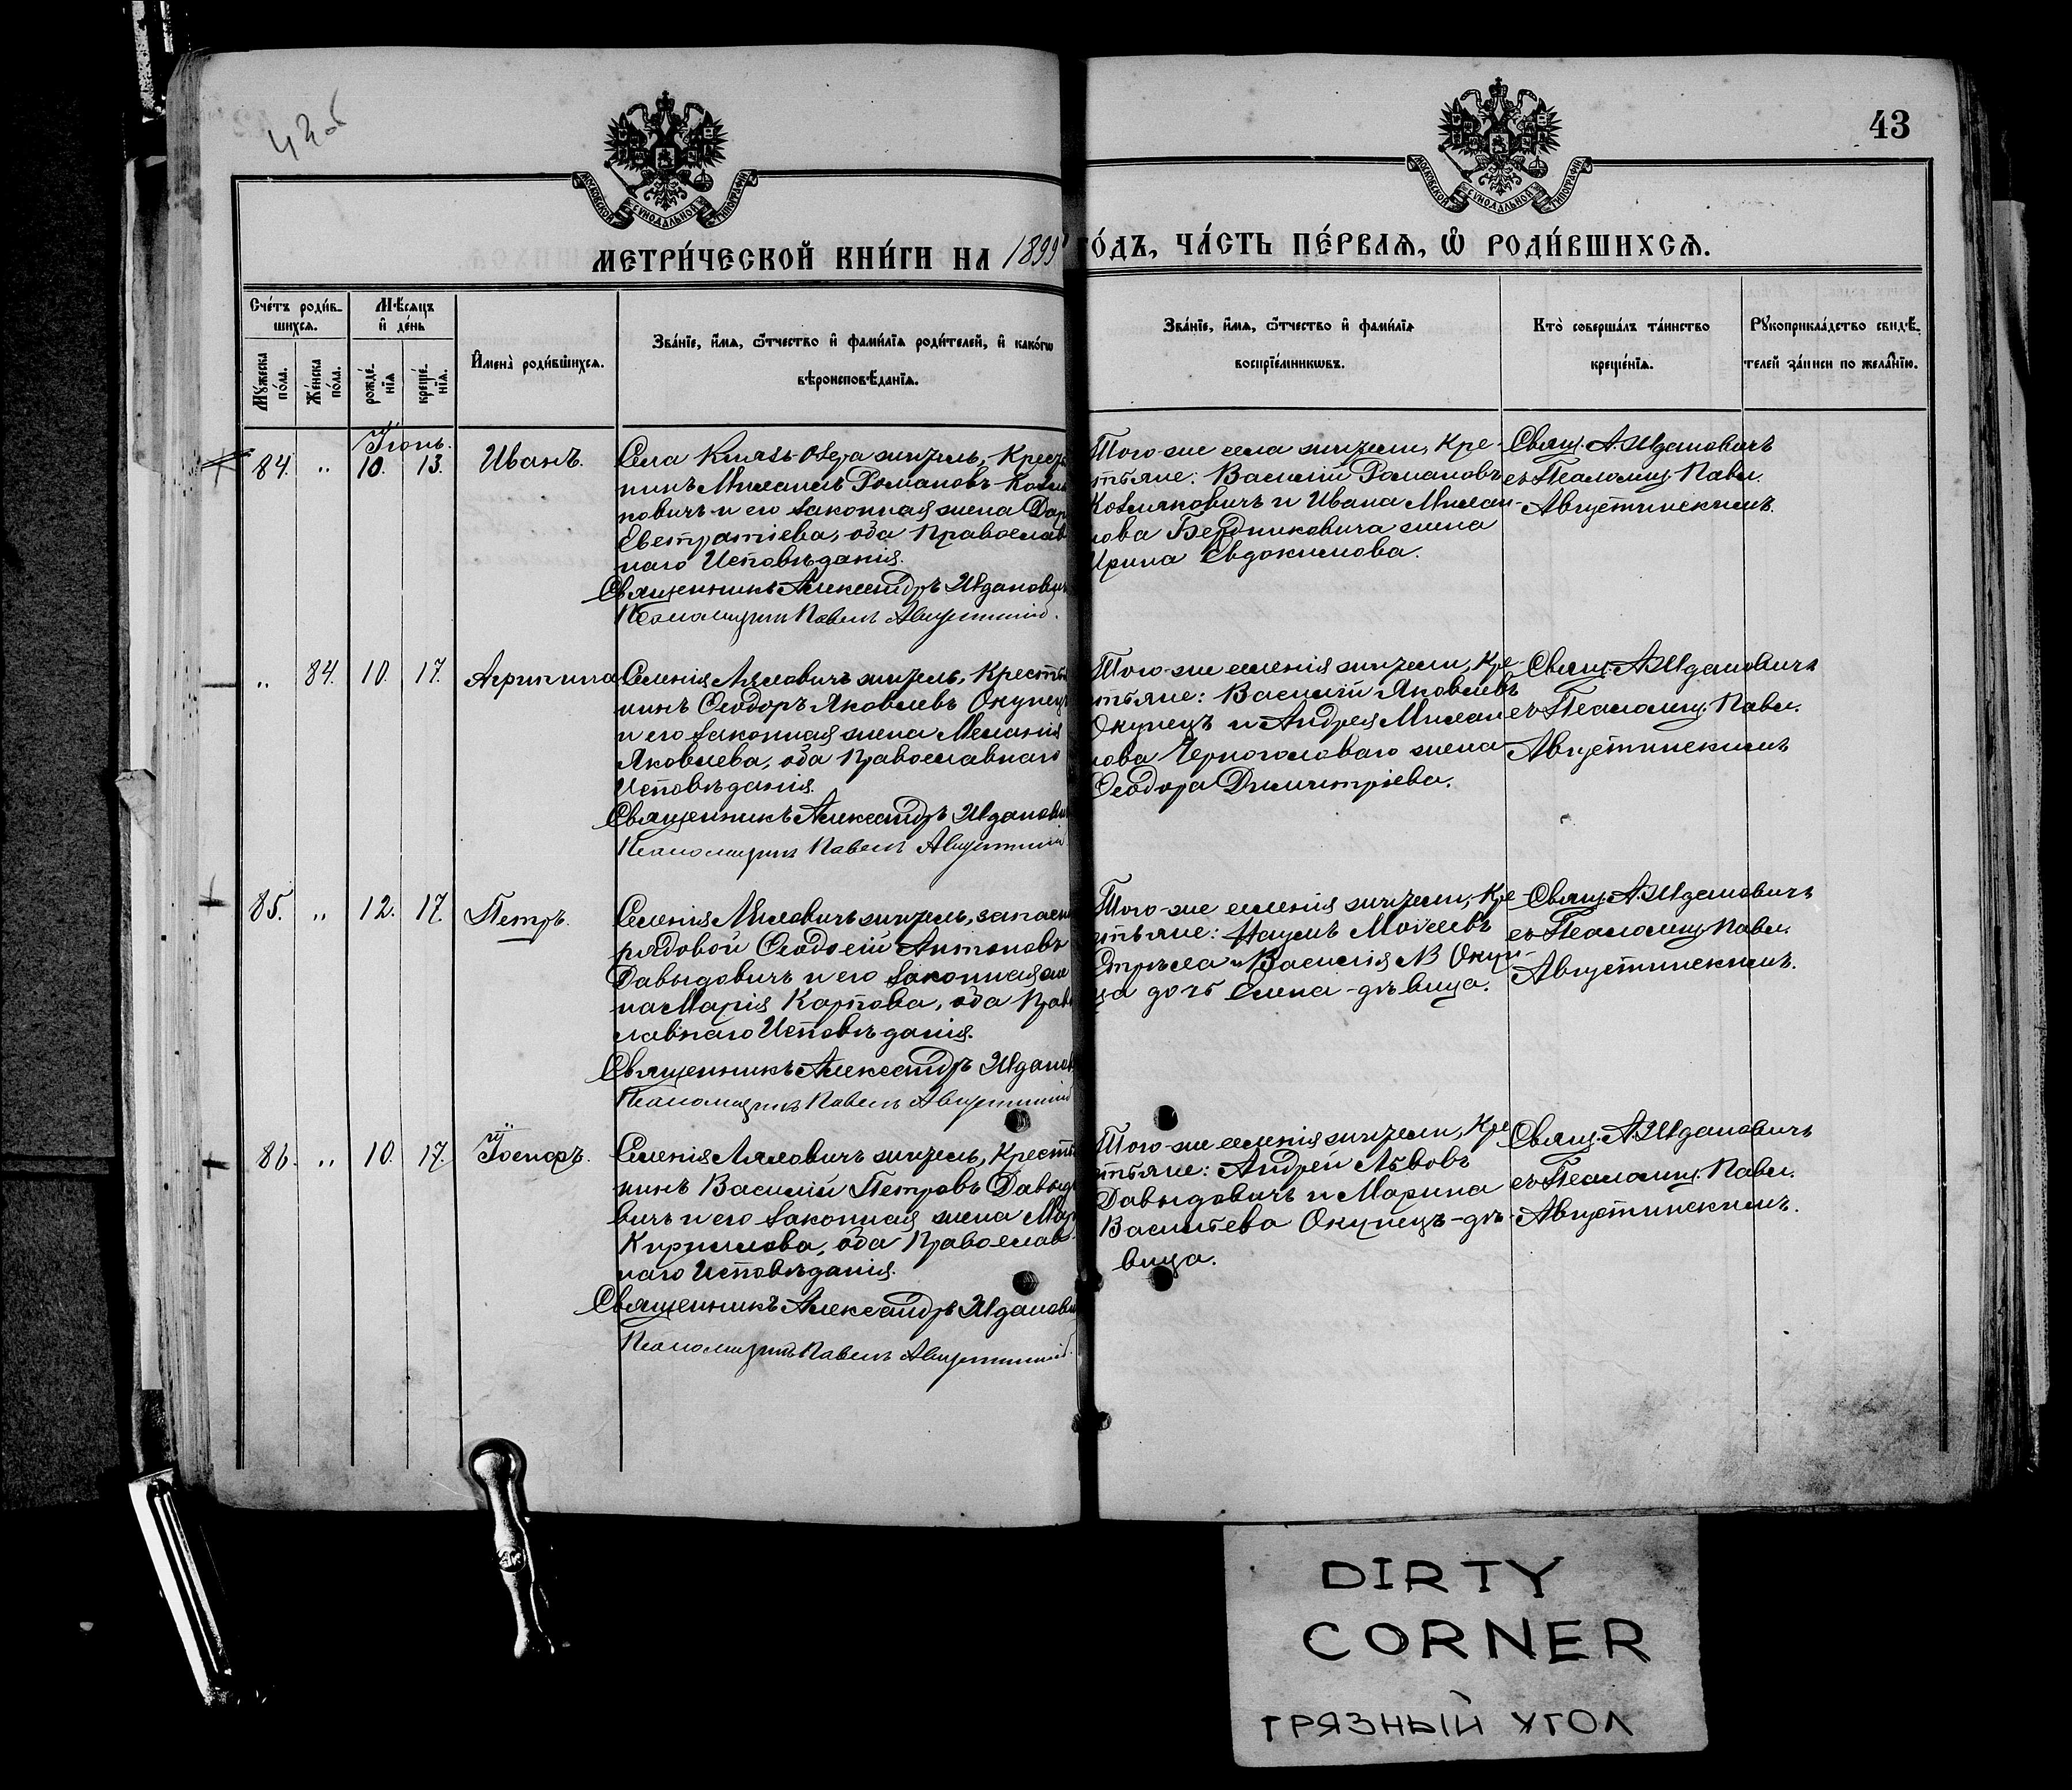 42об
43
МОСКОВСКОЙ СѴНОДАЛЬНОЙ ТИПОГРАФІИ
МОСКОВСКОЙ СѴНОДАЛЬНОЙ ТИПОГРАФІИ
МЕТРИ́ЧЕСКОЙ КНИ́ГИ НА 1899
ГО́ДЪ, ЧА́СТЬ ПЕ́РВАѦ, Ѽ РОДИ́ВШИХСѦ.
Сче́тъ роди́в-
шихсѧ.
Мꙋ́жеска по́ла.
Же́нска по́ла.
Мѣ́сѧцъ
и҆ де́нь
рожде́-
нїѧ
креще́-
нїѧ.
И҆мена̀ роди́вшихсѧ.
Зва́нїе, и҆́мѧ, ѻ҆́тчество и҆ фами́лїѧ роди́телей, и҆ како́гѡ
вѣроисповѣ́данїѧ.
Зва́нїе, и҆́мѧ, ѻ҆́тчество и҆ фами́лїѧ
воспрїе́мникѡвъ.
Кто̀ соверша́лъ та́инство
креще́нїѧ.
Рꙋкоприкла́дство свидѣ́-
телей за́писи по жела́нїю.
Іюнь.
84. „ 10. 13. Иванъ.
Села Князь-Озера житель, Кресть
нинъ Михаилъ Романовъ Козля
ковичъ и его законная жена Дар
Евстратіева, оба Православ
наго Исповѣданія.
Священникъ Александръ Ждановичъ
Псаломщикъ Павелъ Августинскій.
Того-же села жители, Кре-
стьяне: Василій Романовъ
Козляковичъ и Ивана Михаи-
лова Бердниковича жена
Ирина Евдокимова.
Свящ. А. Ждановичъ
съ Псаломщ. Павл.
Августинскимъ.
„ 84. 10. 17. Агрипина
Селенія Ляховичъ житель, Кресть
нинъ Ѳеодоръ Яковлевъ Окунец
и его законная жена Меланія
Яковлева, оба Православнаго
Исповѣданія.
Священникъ Александръ Жданович
Псаломщикъ Павелъ Августинскій
Того-же селенія жители, Кре-
стьяне: Василій Яковлевъ
Окунецъ и Андрея Михаи
лова Черноголоваго жена
Ѳеодора Димитріева.
Свящ. А. Ждановичъ
съ Псаломщ. Павл.
Августинскимъ
85. „ 12. 17. Петръ.
Селенія Ляховичъ житель, запасн
рядовой Ѳеодосій Антоновъ
Давыдовичъ и его законная же
на Марія Карпова, оба Прав
славнаго Исповѣданія.
Священникъ Александръ Жданов
Псаломщикъ Павелъ Августинскій
Того-же селенія жители, Кре
стьяне: Наумъ Моѵсеевъ
Стрѣха и Василія В Окун-
ца дочь Елена-дѣвица.
Свящ. А. Ждановичъ
съ Псаломщ. Павл.
Августинскимъ.
86. „ 10. 17. Іосифъ.
Селенія Ляховичъ житель, Кресть
нинъ Василій Петровъ Давыд
вичъ и его законная жена Мар
Кириллова, оба Православ-
наго Исповѣданія.
Священникъ Александръ Жданови
Псаломщикъ Павелъ Августинскій.
Того-же селенія жители, Кре
стьяне: Андрей Львовъ
Давыдовичъ и Марина
Васильева Окунецъ-дѣ-
вица.
Свящ. А. Ждановичъ
съ Псаломщ. Павл.
Августинскимъ.
DIRTY
CORNER
ГРЯЗНЫЙ УГОЛ